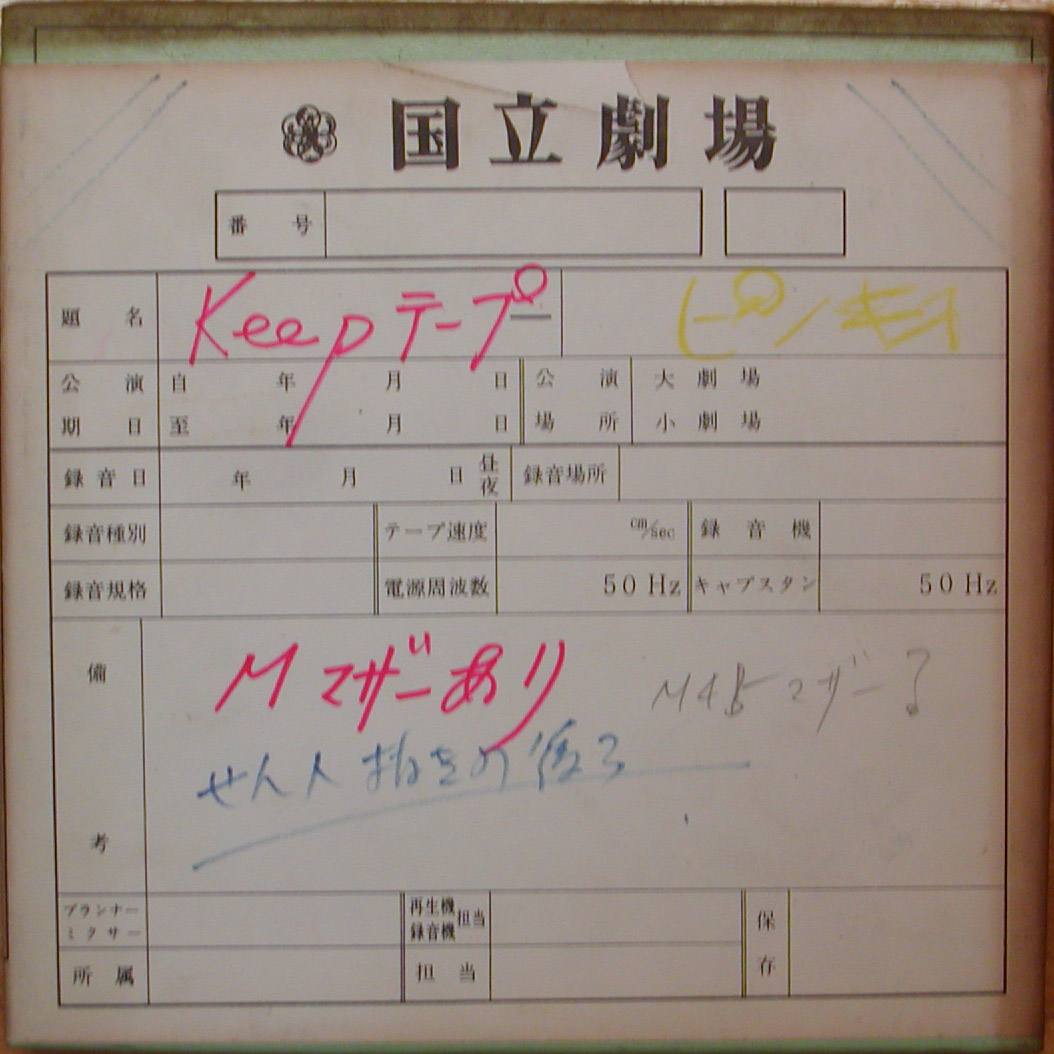 国立劇場
番号
題名 Keepテープ ピノキオ
公演期日 自 年 月 日 公演場所 大劇場
至 年 月 日 小劇場
録音日 年 月 日 昼夜 録音場所
録音種別 テープ速度 cm/sec 録音機
録音規格 電源周波数 50 Hz キャプスタン 50 Hz
備考
M マザーあり
マザー?
せん人 抜きの後ろ
プランナー ミクサー 再生機 録音機 担当 保存
所属 担当